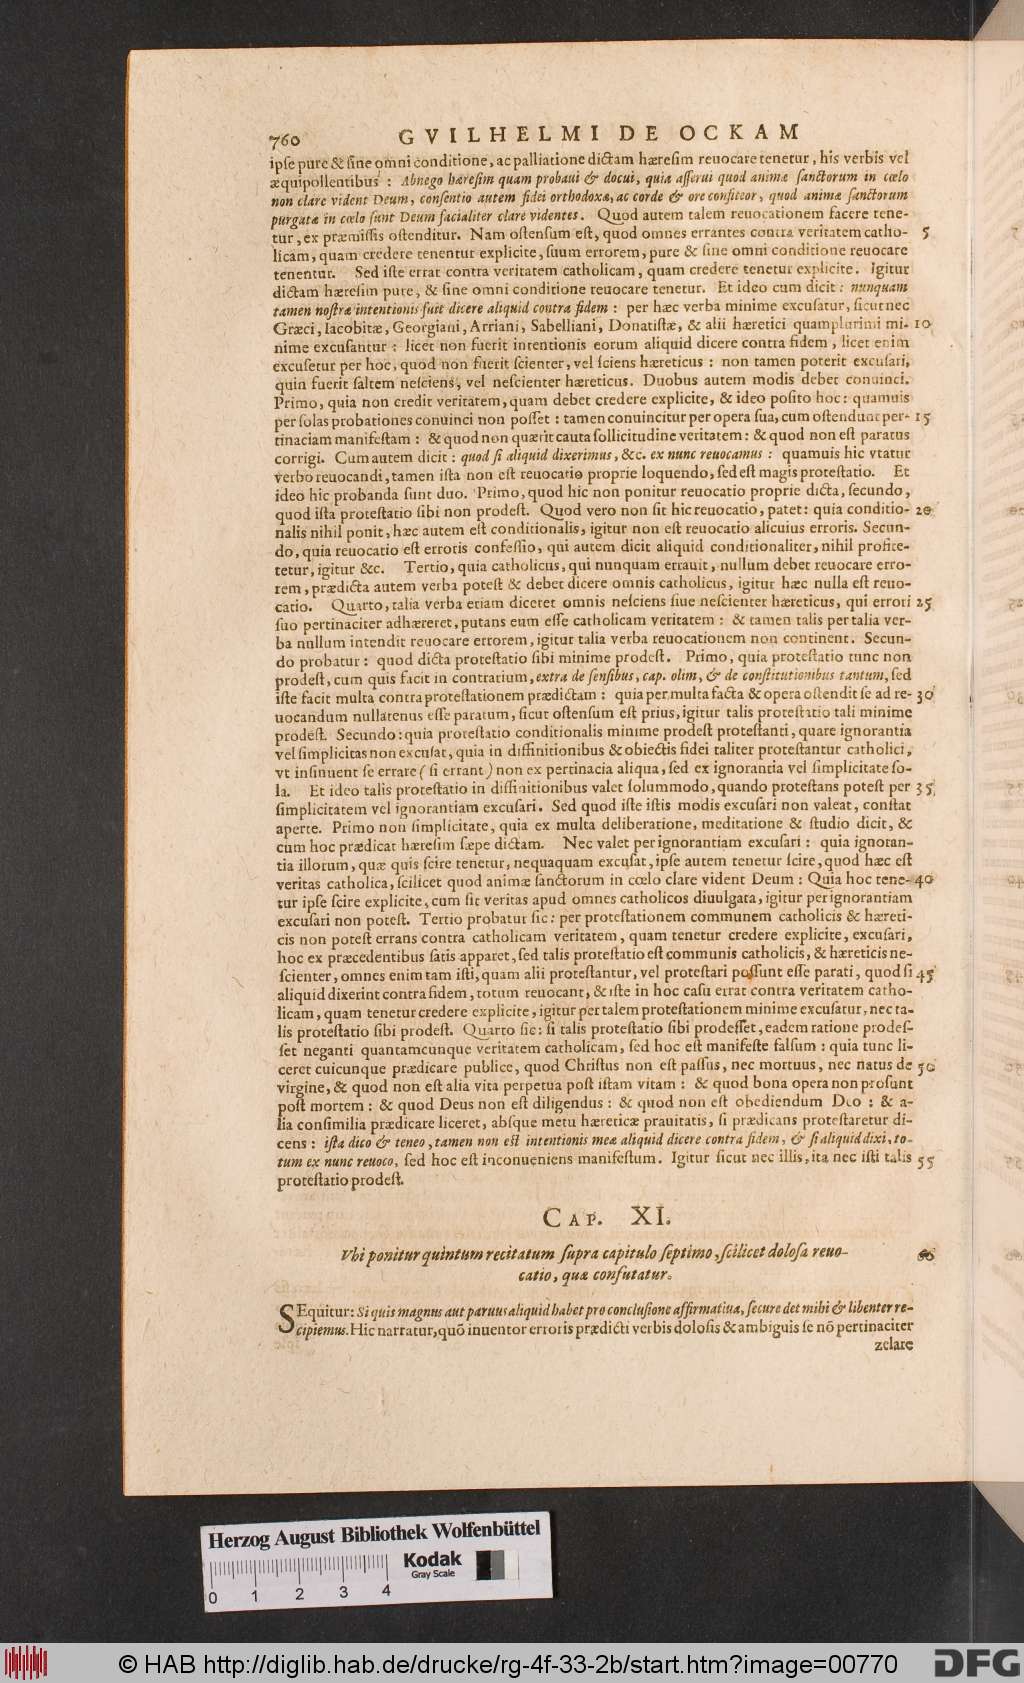 760 GVILHELMI DE OCKAM
ipse pure & sine omni conditione, ac palliatione dictam hæresim reuocare tenetur, his verbis vel
æquipollentibus : Abnego hæresim quam probaui & docui, quia asserui quod animæ sanctorum in cœlo
non clare vident Deum, consentio autem fidei orthodoxæ, ac corde & ore confiteor, quod animæ sanctorum
purgatæ in cœlo sunt Deum facialiter clare videntes. Quod autem talem reuocationem facere tene-
tur, ex præmissis ostenditur. Nam ostensum est, quod omnes errantes contra veritatem catho- 5
licam, quam credere tenentur explicite, suum errorem, pure & sine omni conditione reuocare
tenentur. Sed iste errat contra veritatem catholicam, quam credere tenetur explicite. Igitur
dictam hæresim pure, & sine omni conditione reuocare tenetur. Et ideo cum dicit : nunquam
tamen nostræ intentionis fuit dicere aliquid contra fidem : per hæc verba minime excusatur, sicut nec
Græci, Iacobitæ, Georgiani, Arriani, Sabelliani, Donatistæ, & alii hæretici quamplurimi mi- 10
nime excusantur : licet non fuerit intentionis eorum aliquid dicere contra fidem, licet enim
excusetur per hoc, quod non fuerit scienter, vel sciens hæreticus : non tamen poterit excusari,
quin fuerit saltem nesciens, vel nescienter hæreticus. Duobus autem modis debet conuinci.
Primo, quia non credit veritatem, quam debet credere explicite, & ideo posito hoc : quamuis
per solas probationes conuinci non posset : tamen conuincitur per opera sua, cum ostendunt per- 15
tinaciam manifestam : & quod non quærit cauta sollicitudine veritatem : & quod non est paratus
corrigi. Cum autem dicit : quod si aliquid dixerimus, &c. ex nunc reuocamus : quamuis hic vtatur
verbo reuocandi, tamen ista non est reuocatio proprie loquendo, sed est magis protestatio. Et
ideo hic probanda sunt duo. Primo, quod hic non ponitur reuocatio proprie dicta, secundo,
quod ista protestatio sibi non prodest. Quod vero non sit hic reuocatio, patet : quia conditio- 20
nalis nihil ponit, hæc autem est conditionalis, igitur non est reuocatio alicuius erroris. Secun-
do, quia reuocatio est erroris confessio, qui autem dicit aliquid conditionaliter, nihil profite-
tetur, igitur &c. Tertio, quia catholicus, qui nunquam errauit, nullum debet reuocare erro-
rem, prædicta autem verba potest & debet dicere omnis catholicus, igitur hæc nulla est reuo-
catio. Quarto, talia verba etiam diceret omnis nesciens siue nescienter hæreticus, qui errori 25
suo pertinaciter adhæreret, putans eum esse catholicam veritatem : & tamen talis per talia ver-
ba nullum intendit reuocare errorem, igitur talia verba reuocationem non continent. Secun-
do probatur : quod dicta protestatio sibi minime prodest. Primo, quia protestatio tunc non
prodest, cum quis facit in contrarium, extra de sensibus, cap. olim, & de constitutionibus tantum, sed
iste facit multa contra protestationem prædictam : quia per multa facta & opera ostendit se ad re- 30
uocandum nullatenus esse paratum, sicut ostensum est prius, igitur talis protestatio tali minime
prodest. Secundo : quia protestatio conditionalis minime prodest protestanti, quare ignorantia
vel simplicitas non excusat, quia in diffinitionibus & obiectis fidei taliter protestantur catholici,
vt insinuent se errare (si errant) non ex pertinacia aliqua, sed ex ignorantia vel simplicitate so-
la. Et ideo talis protestatio in diffinitionibus valet solummodo, quando protestans potest per 35
simplicitatem vel ignorantiam excusari. Sed quod iste istis modis excusari non valeat, constat
aperte. Primo non simplicitate, quia ex multa deliberatione, meditatione & studio dicit, &
cum hoc prædicat hæresim sæpe dictam. Nec valet per ignorantiam excusari : quia ignoran-
tia illorum, quæ quis scire tenetur, nequaquam excusat, ipse autem tenetur scire, quod hæc est
veritas catholica, scilicet quod animæ sanctorum in cœlo clare vident Deum : Quia hoc tene- 40
tur ipse scire explicite, cum sit veritas apud omnes catholicos diuulgata, igitur per ignorantiam
excusari non potest. Tertio probatur sic : per protestationem communem catholicis & hæreti-
cis non potest errans contra catholicam veritatem, quam tenetur credere explicite, excusari,
hoc ex præcedentibus satis apparet, sed talis protestatio est communis catholicis, & hæreticis ne-
scienter, omnes enim tam isti, quam alii protestantur, vel protestari possunt esse parati, quod si 45
aliquid dixerint contra fidem, totum reuocant, & iste in hoc casu errat contra veritatem catho-
licam, quam tenetur credere explicite, igitur per talem protestationem minime excusatur, nec ta-
lis protestatio sibi prodest. Quarto sic : si talis protestatio sibi prodesset, eadem ratione prodes-
set neganti quantamcunque veritatem catholicam, sed hoc est manifeste falsum : quia tunc li-
ceret cuicunque prædicare publice, quod Christus non est passus, nec mortuus, nec natus de 50
virgine, & quod non est alia vita perpetua post istam vitam : & quod bona opera non prosunt
post mortem : & quod Deus non est diligendus : & quod non est obediendum Deo : & a-
lia consimilia prædicare liceret, absque metu hæreticæ prauitatis, si prædicans protestaretur di-
cens : ista dico & teneo, tamen non est intentionis meæ aliquid dicere contra fidem, & si aliquid dixi, to-
tum ex nunc reuoco, sed hoc est inconueniens manifestum. Igitur sicut nec illis, ita nec isti talis 55
protestatio prodest.
CAP. XI.
Vbi ponitur quintum recitatum supra capitulo septimo, scilicet dolosa reuo- 60
catio, quæ confutatur.
SEquitur : Si quis magnus aut paruus aliquid habet pro conclusione affirmatiua, secure det mihi & libenter re-
cipiemus. Hic narratur, quō inuentor erroris prædicti verbis dolosis & ambiguis se nō pertinaciter
zelare
Herzog August Bibliothek Wolfenbüttel
Kodak
Gray Scale
0 1 2 3 4
© HAB http://diglib.hab.de/drucke/rg-4f-33-2b/start.htm?image=00770
DFG